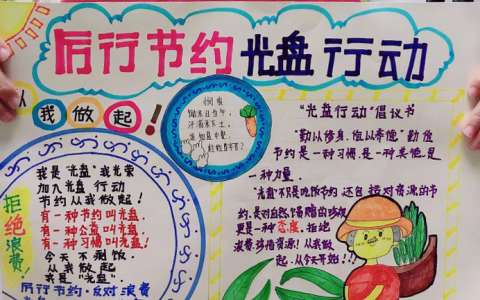 厉行节约 光盘行动
从我做起!
悯农
锄禾日当午,
汗滴禾下土,
谁知盘中餐,
粒粒皆辛苦?
拒绝浪费!
我是"光盘"我光荣
加入光盘 行动
节约从我做起!
有一种节约叫光盘,
有一种公益叫光盘,
有一种习惯叫光盘!
今天 不剩饭,
从我做 起
我是"光盘",
厉行节约·反对浪费
"光盘行动"倡议书
"勤以修身,俭以养德"勤俭
节约是一种习惯,是一种美德,是
一种力量.
"光盘"不只是吃饭节约 还包
对资源的节
约,是对自然
更是一种态度,拒绝
浪费珍惜资源!从我做
起,从今天开始!!!